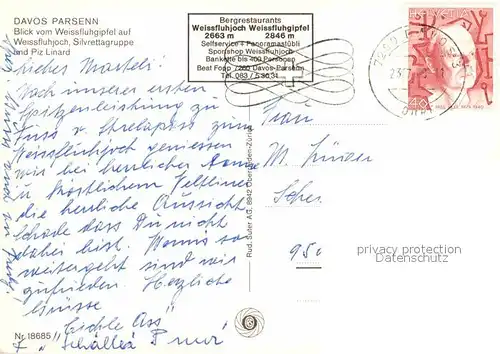 DAVOS PARSENN
Blick vom Weissfluhgipfel auf
Weissfluhjoch, Silvrettagruppe
und Piz Linard
Bergrestaurants
Weissfluhjoch Weissfluhgipfel
2663 m 2846 m
Selfservice + Panoramastübli
Sportshop Weissfluhjoch
Bankette bis 400 Personen
Beat Fopp 7260 Davos-Parsenn
Tel. 083 / 5 36 31
HELVETIA
40
Lieber Marteli!
Nach unserer ersten
Spitzenleistung zu
Fuss v. Strelapass zum
Weissfluhjoch geniessen
wir bei herrlicher Sonne
u. köstlichem Veltliner
die herrliche Aussicht.
Schade dass Du nicht
dabei bist. Wenns so
weitergeht sind wir
zufrieden. Herzliche
Grüsse
Frau
M.
950
Rud. Suter AG, 8942 Oberrieden-Zürich
privacy protection
Datenschutz
Nr. 18685